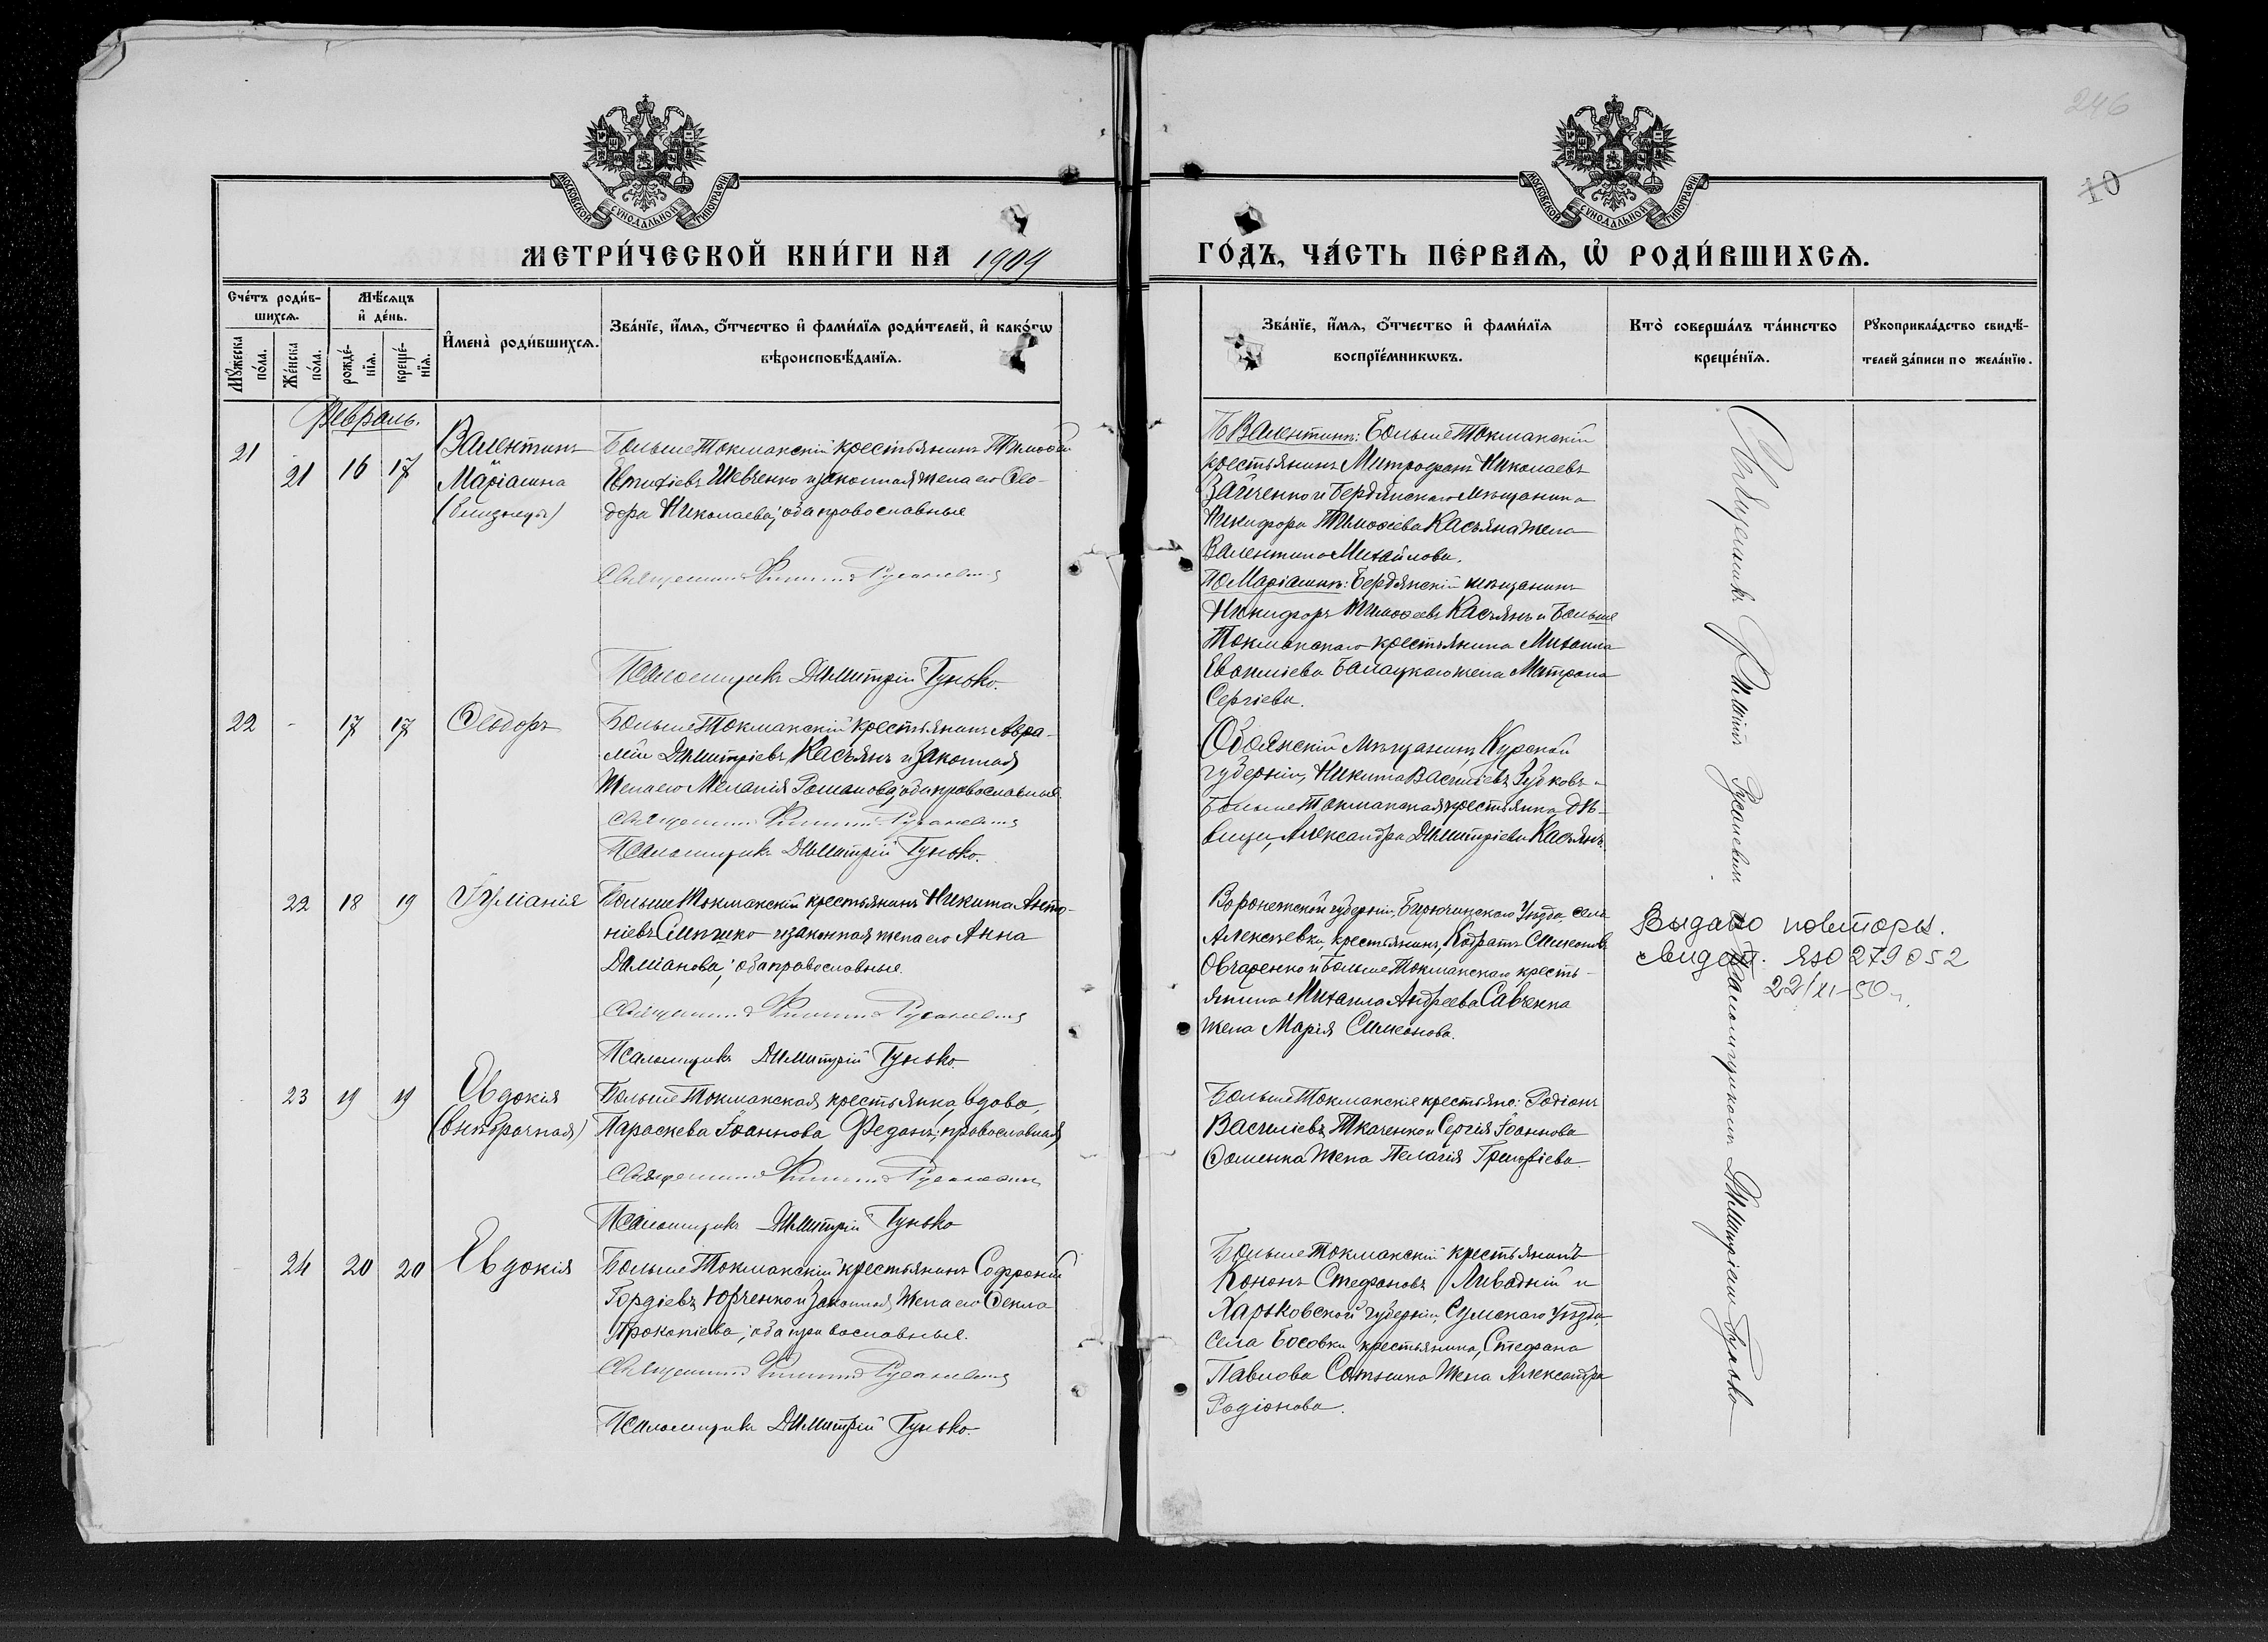 246
10
МОСКОВСКОЙ СѴНОДАЛЬНОЙ ТИПОГРАФІИ
МОСКОВСКОЙ СѴНОДАЛЬНОЙ ТИПОГРАФІИ
МЕТРИ́ЧЕСКОЙ КНИ́ГИ НА 1909
ГО́ДЪ, ЧА́СТЬ ПЕ́РВАѦ, Ѡ҆ РОДИ́ВШИХСѦ.
Сче́тъ роди́в-
шихсѧ.
Мꙋ́жеска по́ла.
Же́нска по́ла.
Мѣ́сѧцъ
и҆ де́нь.
рожде́-нїѧ.
креще́-нїѧ.
И҆мена̀ роди́вшихсѧ.
Зва́нїе, и҆́мѧ, ѻ҆́тчество и҆ фами́лїѧ роди́телей, и҆ како́гѡ
вѣроисповѣ́данїѧ.
Зва́нїе, и҆́мѧ, ѻ҆́тчество и҆ фами́лїѧ
воспрїе́мникѡвъ.
Кто̀ соверша́лъ та́инство
креще́нїѧ.
Рꙋкоприкла́дство свидѣ́-
телей за́писи по жела́нїю.
Февраль.
21
21 16 17
Валентинъ
Маріамна
(близнецы)
Больше Токмакскій крестьянинъ Тимоѳей
Евтихіевъ Шевченко и законная жена его Ѳео-
дора Николаева; оба православные
Священникъ Филиппъ Русаневичъ
Псаломщикъ Димитрій Гунько.
П. Валентина: Больше Токмакскій
крестьянинъ Митрофанъ Николаевъ
Зайченко и Бердянскаго мѣщанина
Никифора Тимоѳеева Касьяна жена
Валентина Михайлова.
По Маріамнѣ: Бердянскій мѣщанинъ
Никифоръ Тимоѳеевъ Касьянъ и Больше
Токмакскаго крестьянина Михаила
Евѳиміева жена Матрона
Сергіева.
22 - 17 17 Ѳеодоръ
Больше Токмакскій крестьянинъ Авра-
мій Димитріевъ Касьянъ и законная
жена его Меланія Романова; оба православные.
Священникъ Филиппъ Русаневичъ
Псаломщикъ Димитрій Гунько.
Обоянскій мѣщанинъ, Курской
губерніи, Никита Васильевъ Зубковъ и
Больше Токмакская крестьянка дѣ-
вица, Александра Димитріева Касьянъ.
22 18 19 Іуліанія
Больше Токмакскій крестьянинъ Никита Анто-
ніевъ и законная жена его Анна
Даміанова; оба православные.
Священникъ Филиппъ Русаневичъ
Псаломщикъ Димитрій Гунько.
Воронежской губерніи, Бирюченскаго уѣзда, села
Алексѣевки, крестьянинъ, Кодратъ Симеоновъ
Овчаренко и Больше Токмакскаго кресть-
янина Михаила Андреева Савченка
жена Марія Симеонова.
Выдано повторн.
свидет. ЯЮ 279052
22/XI-50 г.
23 19 19 Евдокія
(внѣбрачная)
Больше Токмакская крестьянка, вдова,
Параскева Іоаннова Феданъ; православная
Священникъ Филиппъ Русаневичъ
Псаломщикъ Димитрій Гунько
Больше Токмакскіе крестьяне: Родіонъ
Васильевъ Ткаченко и Сергія Іоаннова
Ѳоменка жена Пелагія Григоріева.
24 20 20 Евдокія
Больше Токмакскій крестьянинъ Софроній
Гордіевъ Юрченко и законная жена его Ѳекла
Прокопіева; оба православные.
Священникъ Филиппъ Русаневичъ
Псаломщикъ Димитрій Гунько.
Больше Токмакскій крестьянинъ
Кононъ Стефановъ Ливадній и
Харьковской губерніи, Сумскаго уѣзда
села Босовки крестьянина, Стефана
Павлова жена Александра
Родіонова.
Священникъ Филиппъ Русаневичъ съ Псаломщикомъ Димитріемъ Гунько